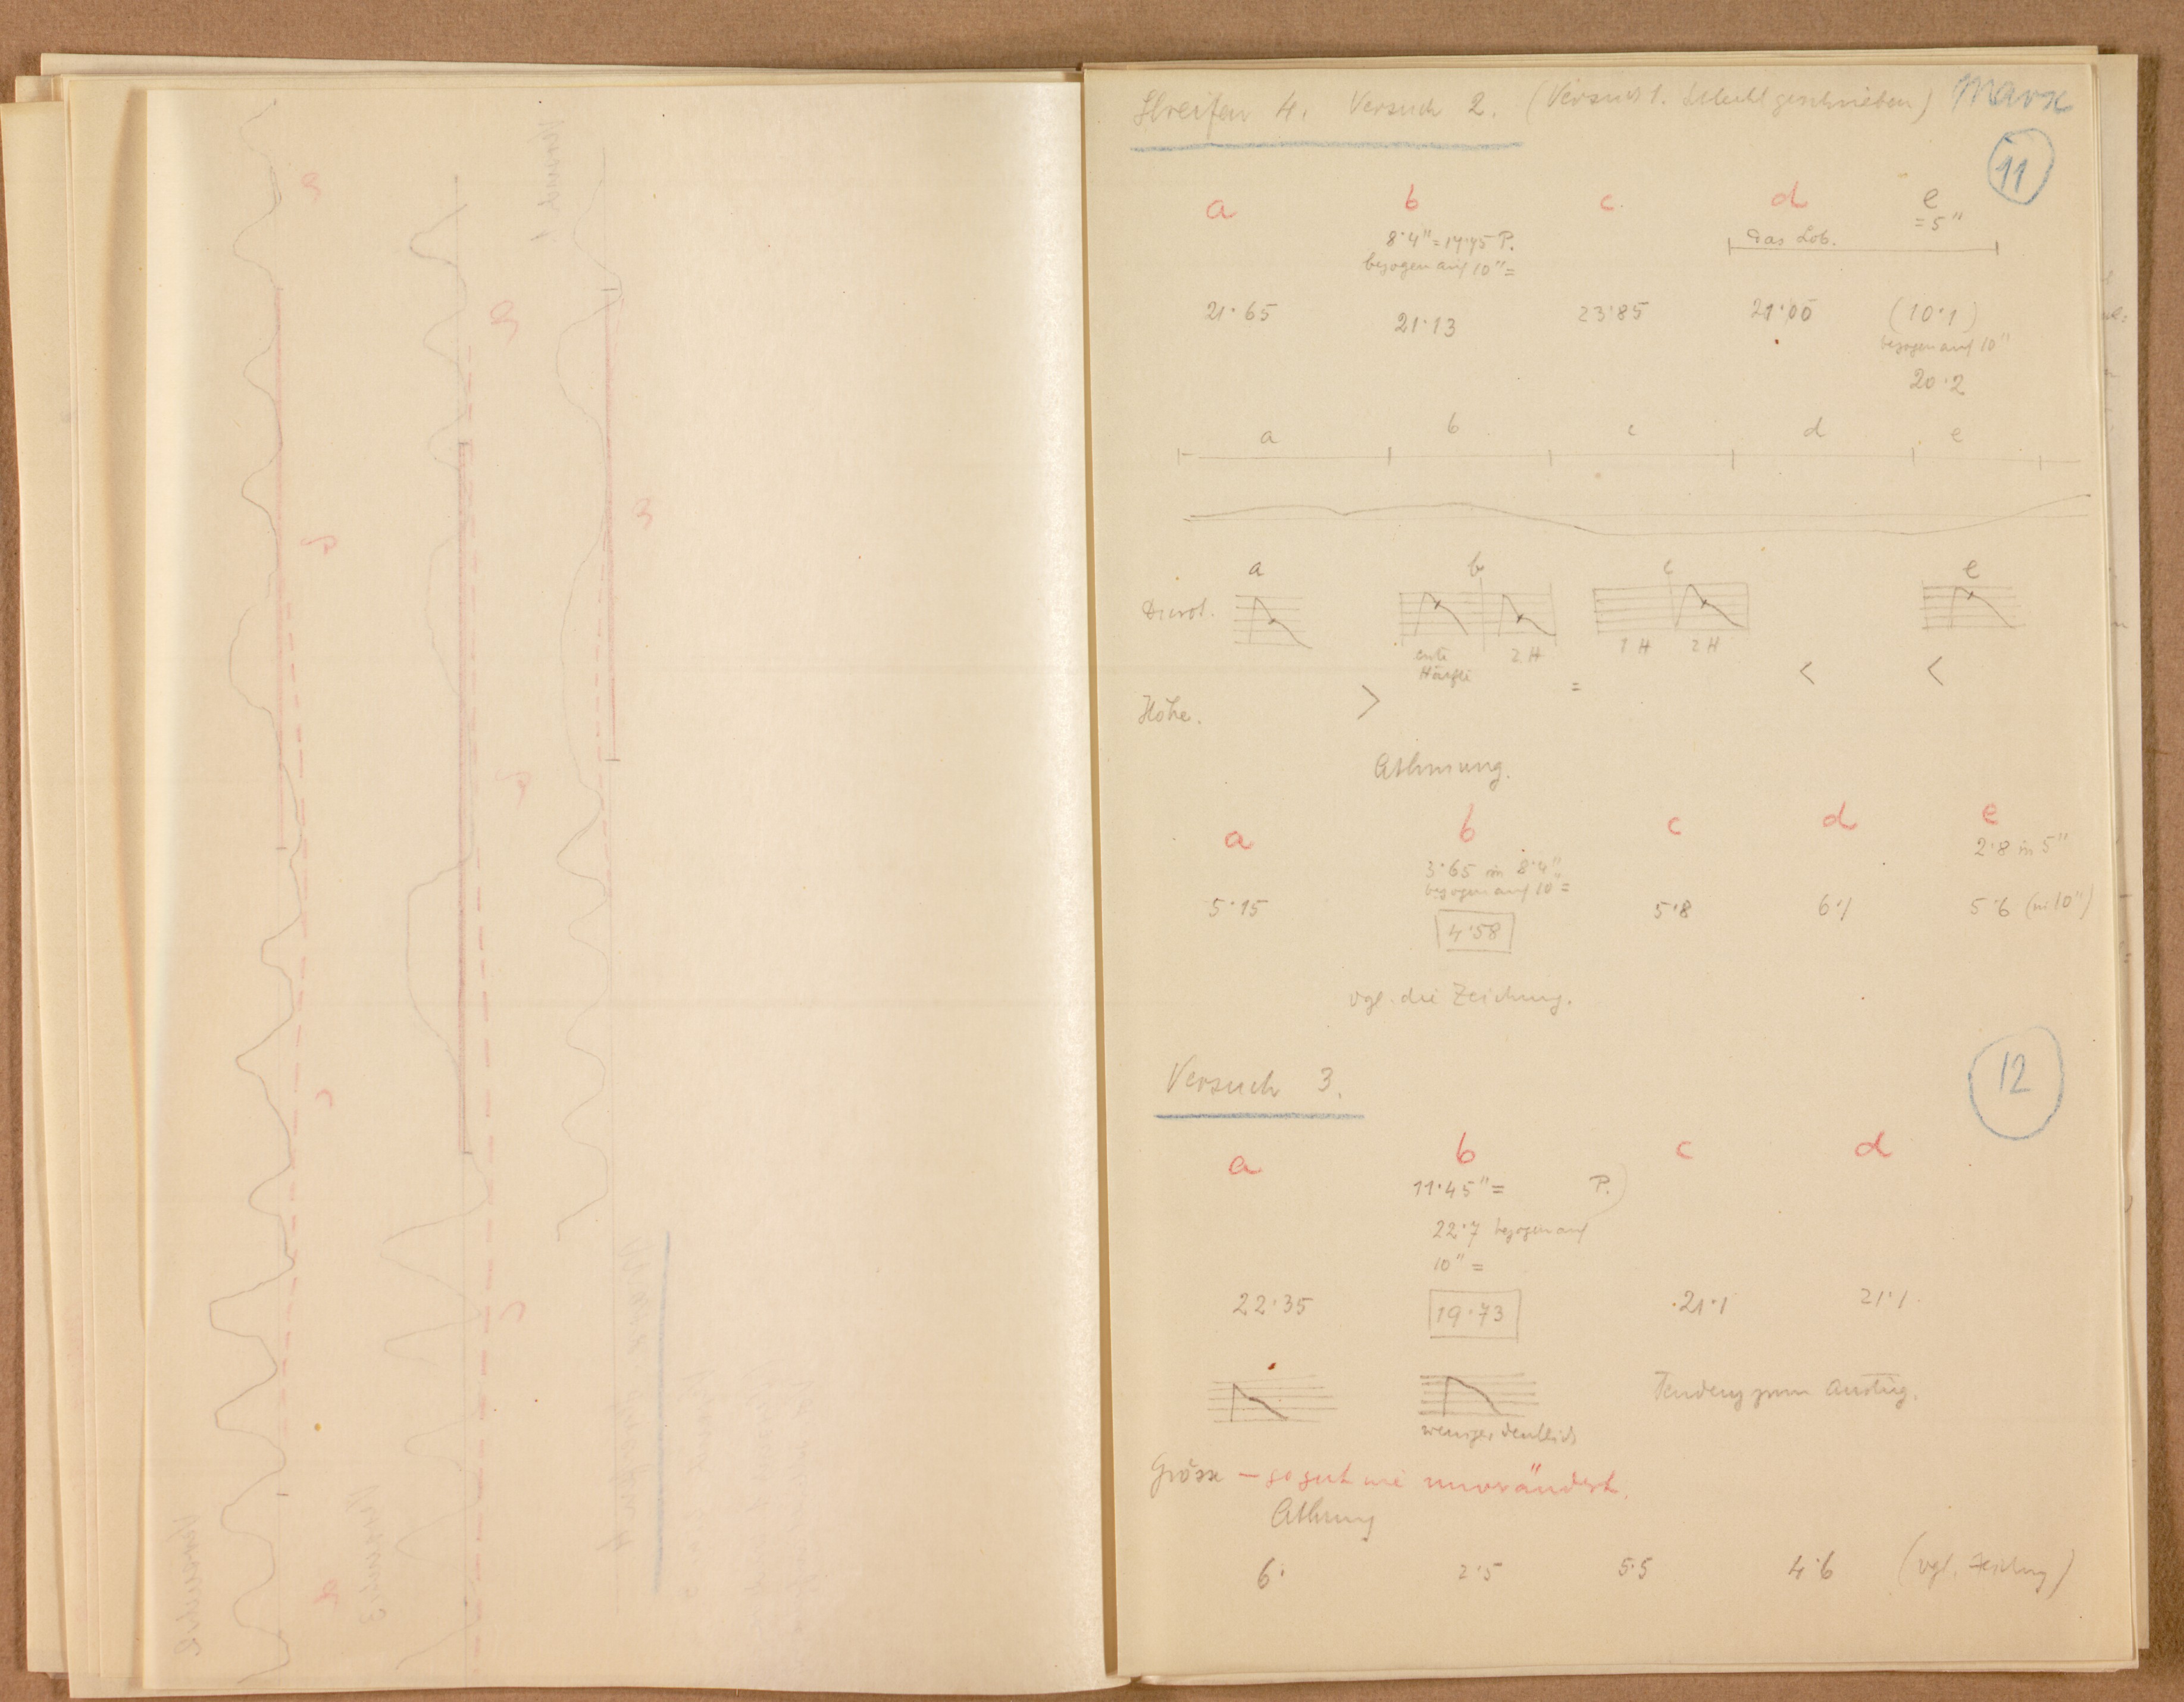 Streifen 4. Versuch 2. (Versuch 1. schlecht geschrieben) Marx
11
a b c. d e
= 5"
8·4" = 17·75 P. das Lob.
bezogen auf 10" =
21·65 21·13 23·85 21·00 (10·1)
bezogen auf 10"
20·2
a b c d e
a b c e
Dicrot.
erste 2 H 1 H 2 H
Hälfte
> = < <
Höhe.
Athmung.
a b c d e
2·8 in 5"
3·65 in 8·4"
bezogen auf 10" =
5·15 4·58 5·8 6·1 5·6 (in 10")
vgl. die Zeichung.
12
Versuch 3.
a b c d
11·45" = P.)
22·7 bezogen auf
10" =
22·35 19·73 21·1 21·1
Tendenz zum Anstieg.
weniger deutlich
Grösse — so gut wie unverändert.
Athmung
6· 2·5 5·5 4·6 (vgl. Zeichng)